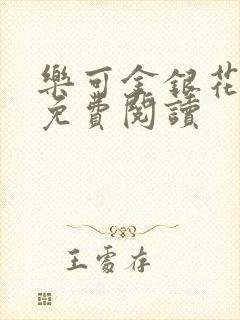 樂可金銀花
免費閱讀
王雪存